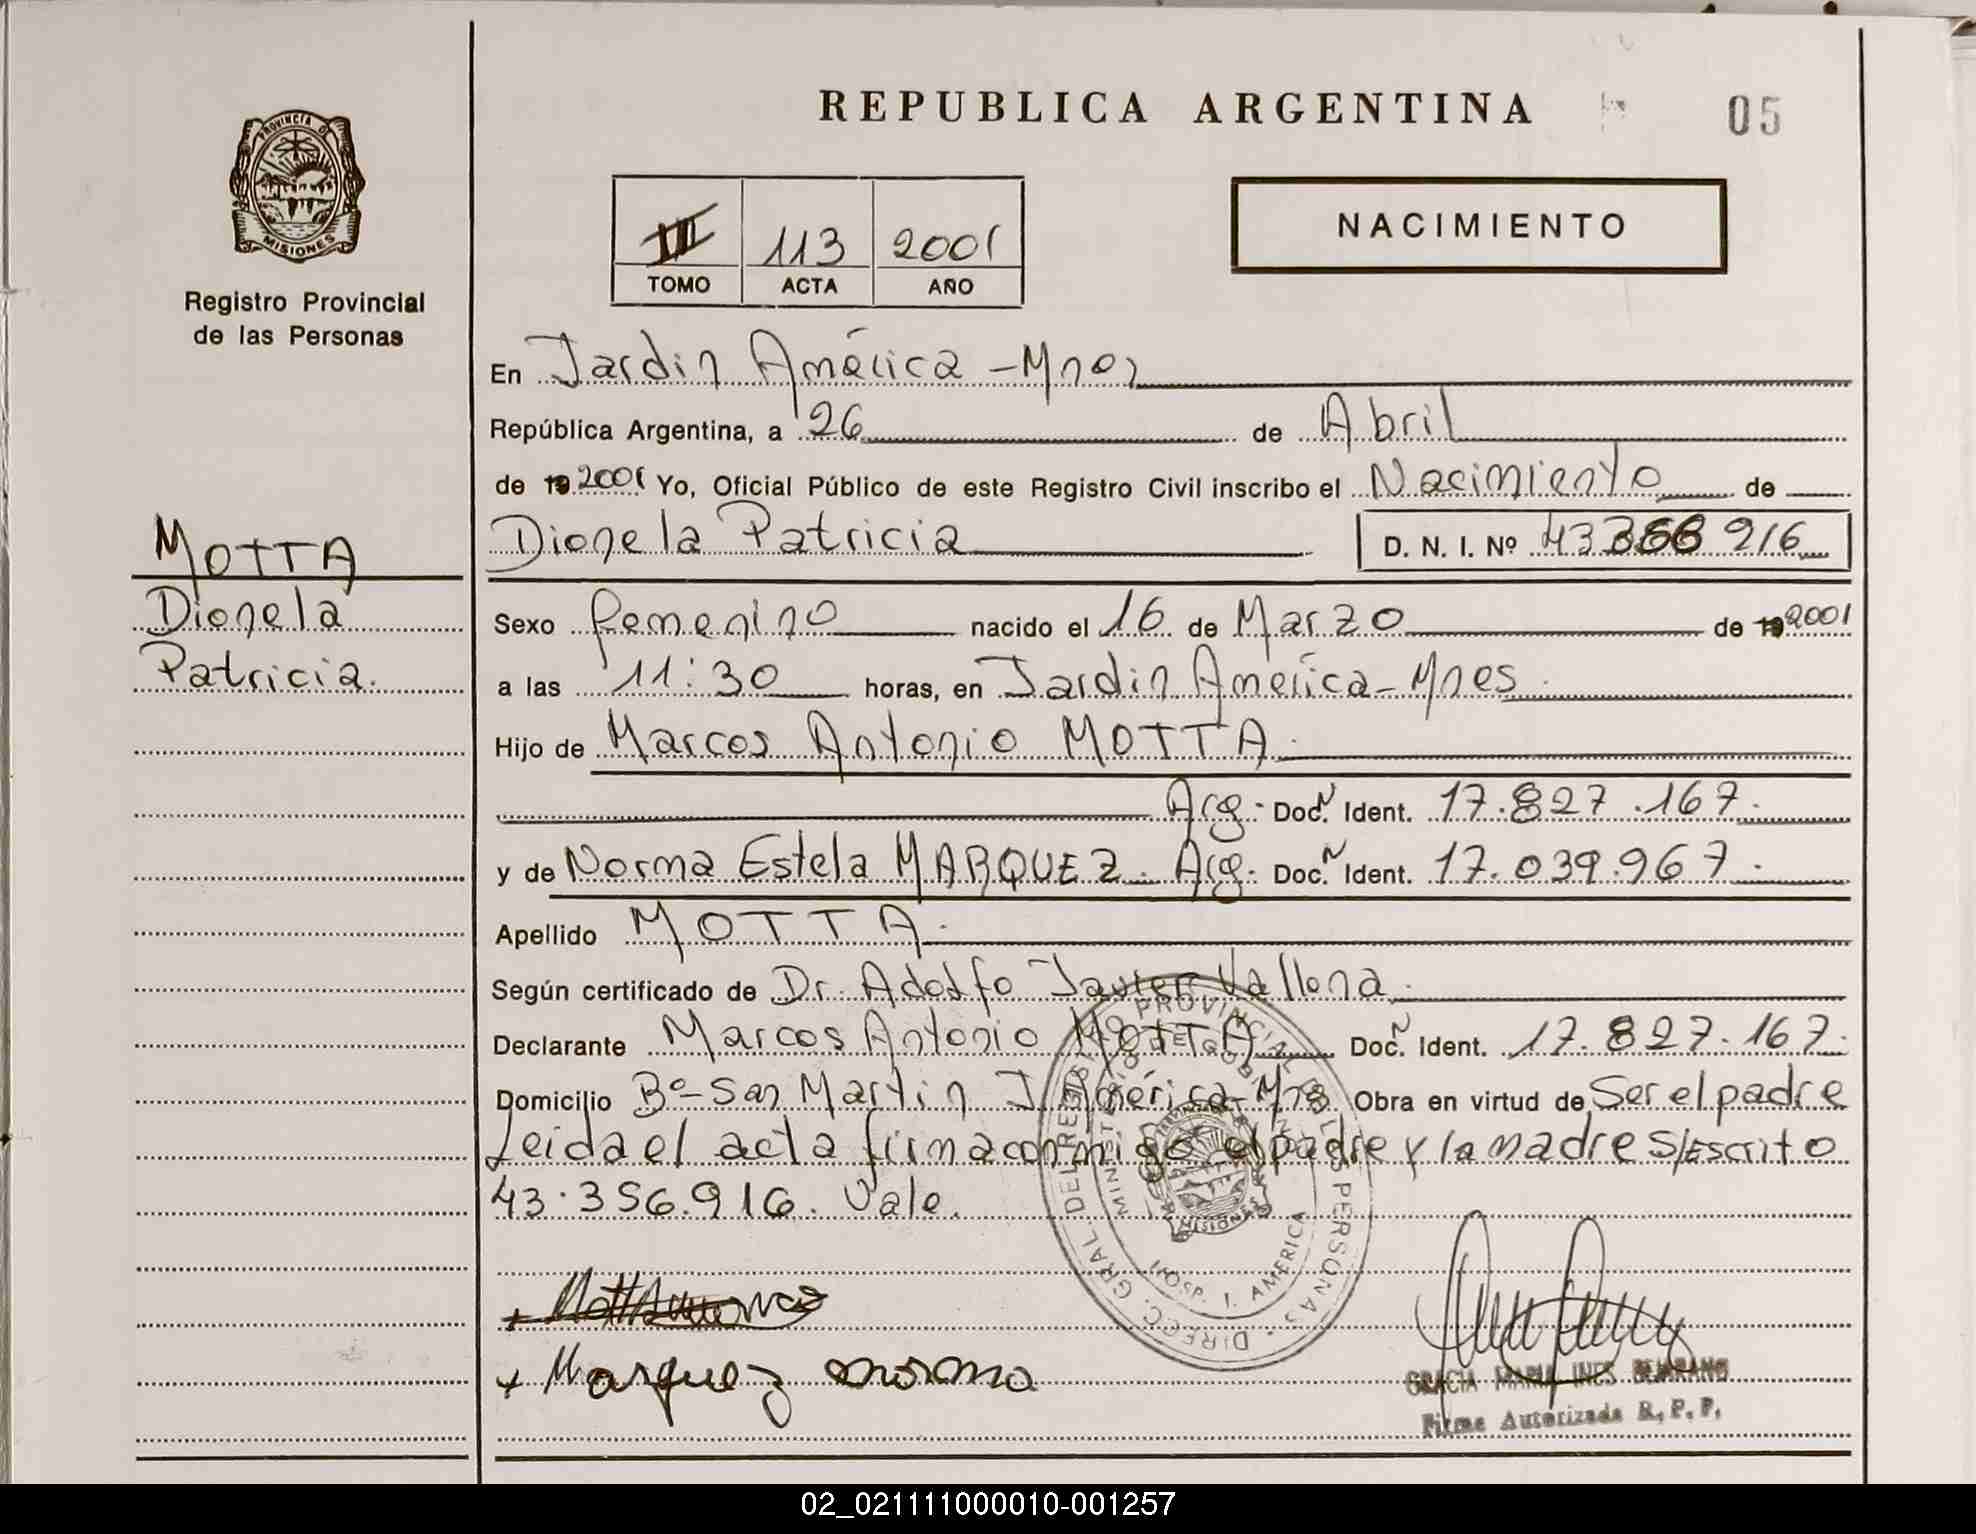 REPUBLICA ARGENTINA
05
PROVINCIA DE
MISIONES
Registro Provincial
de las Personas
III 113 2001
TOMO ACTA AÑO
NACIMIENTO
En Jardin América - Mnes
República Argentina, a 26 de Abril
de 19 2001 Yo, Oficial Público de este Registro Civil inscribo el Nacimiento de
Dionela Patricia D. N. I. Nº 43 356 916
MOTTA
Dionela
Patricia.
Sexo femenino nacido el 16 de Marzo de 19 2001
a las 11:30 horas, en Jardin América - Mnes.
Hijo de Marcos Antonio MOTTA.
Arg. Doc. N Ident. 17.827.167.
y de Norma Estela MARQUEZ. Arg. Doc. N Ident. 17.039.967.
Apellido MOTTA.
Según certificado de Dr. Adolfo Javier Vallena.
Declarante Marcos Antonio MOTTA Doc. N Ident. 17.827.167.
Domicilio Bº San Martin J. América - Mns Obra en virtud de Ser el padre
Leida el acta firma conmigo el padre y la madre S/Escrito
43.356.916. Vale.
DIRECC. GRAL. DEL REGISTRO PROVINCIAL DE LAS PERSONAS
MINISTERIO DE GOBIERNO
MISIONES
HOSP. J. AMERICA
+ Marquez norma
GRACIA MARIA INES BEJARANO
Firma Autorizada R. P. P.
02_021111000010-001257